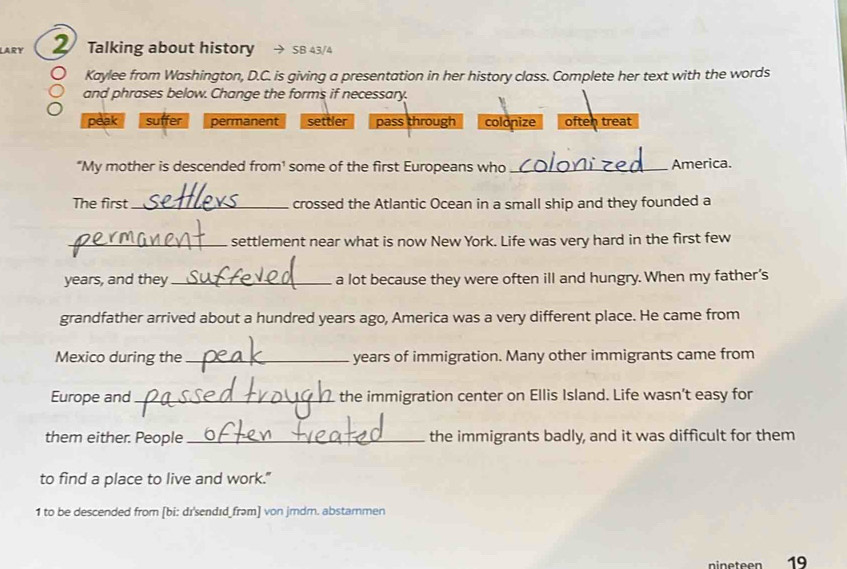 LARY 2 Talking about history → SB 43/4
Kaylee from Washington, D.C. is giving a presentation in her history class. Complete her text with the words
and phrases below. Change the forms if necessary.
peak suffer permanent settler pass through colonize often treat
"My mother is descended from¹ some of the first Europeans who colonized America.
The first settlers crossed the Atlantic Ocean in a small ship and they founded a
permanent settlement near what is now New York. Life was very hard in the first few
years, and they suffered a lot because they were often ill and hungry. When my father's
grandfather arrived about a hundred years ago, America was a very different place. He came from
Mexico during the peak years of immigration. Many other immigrants came from
Europe and passed trough the immigration center on Ellis Island. Life wasn't easy for
them either. People often treated the immigrants badly, and it was difficult for them
to find a place to live and work."
1 to be descended from [biː dɪˈsendɪd_frəm] von jmdm. abstammen
nineteen 19